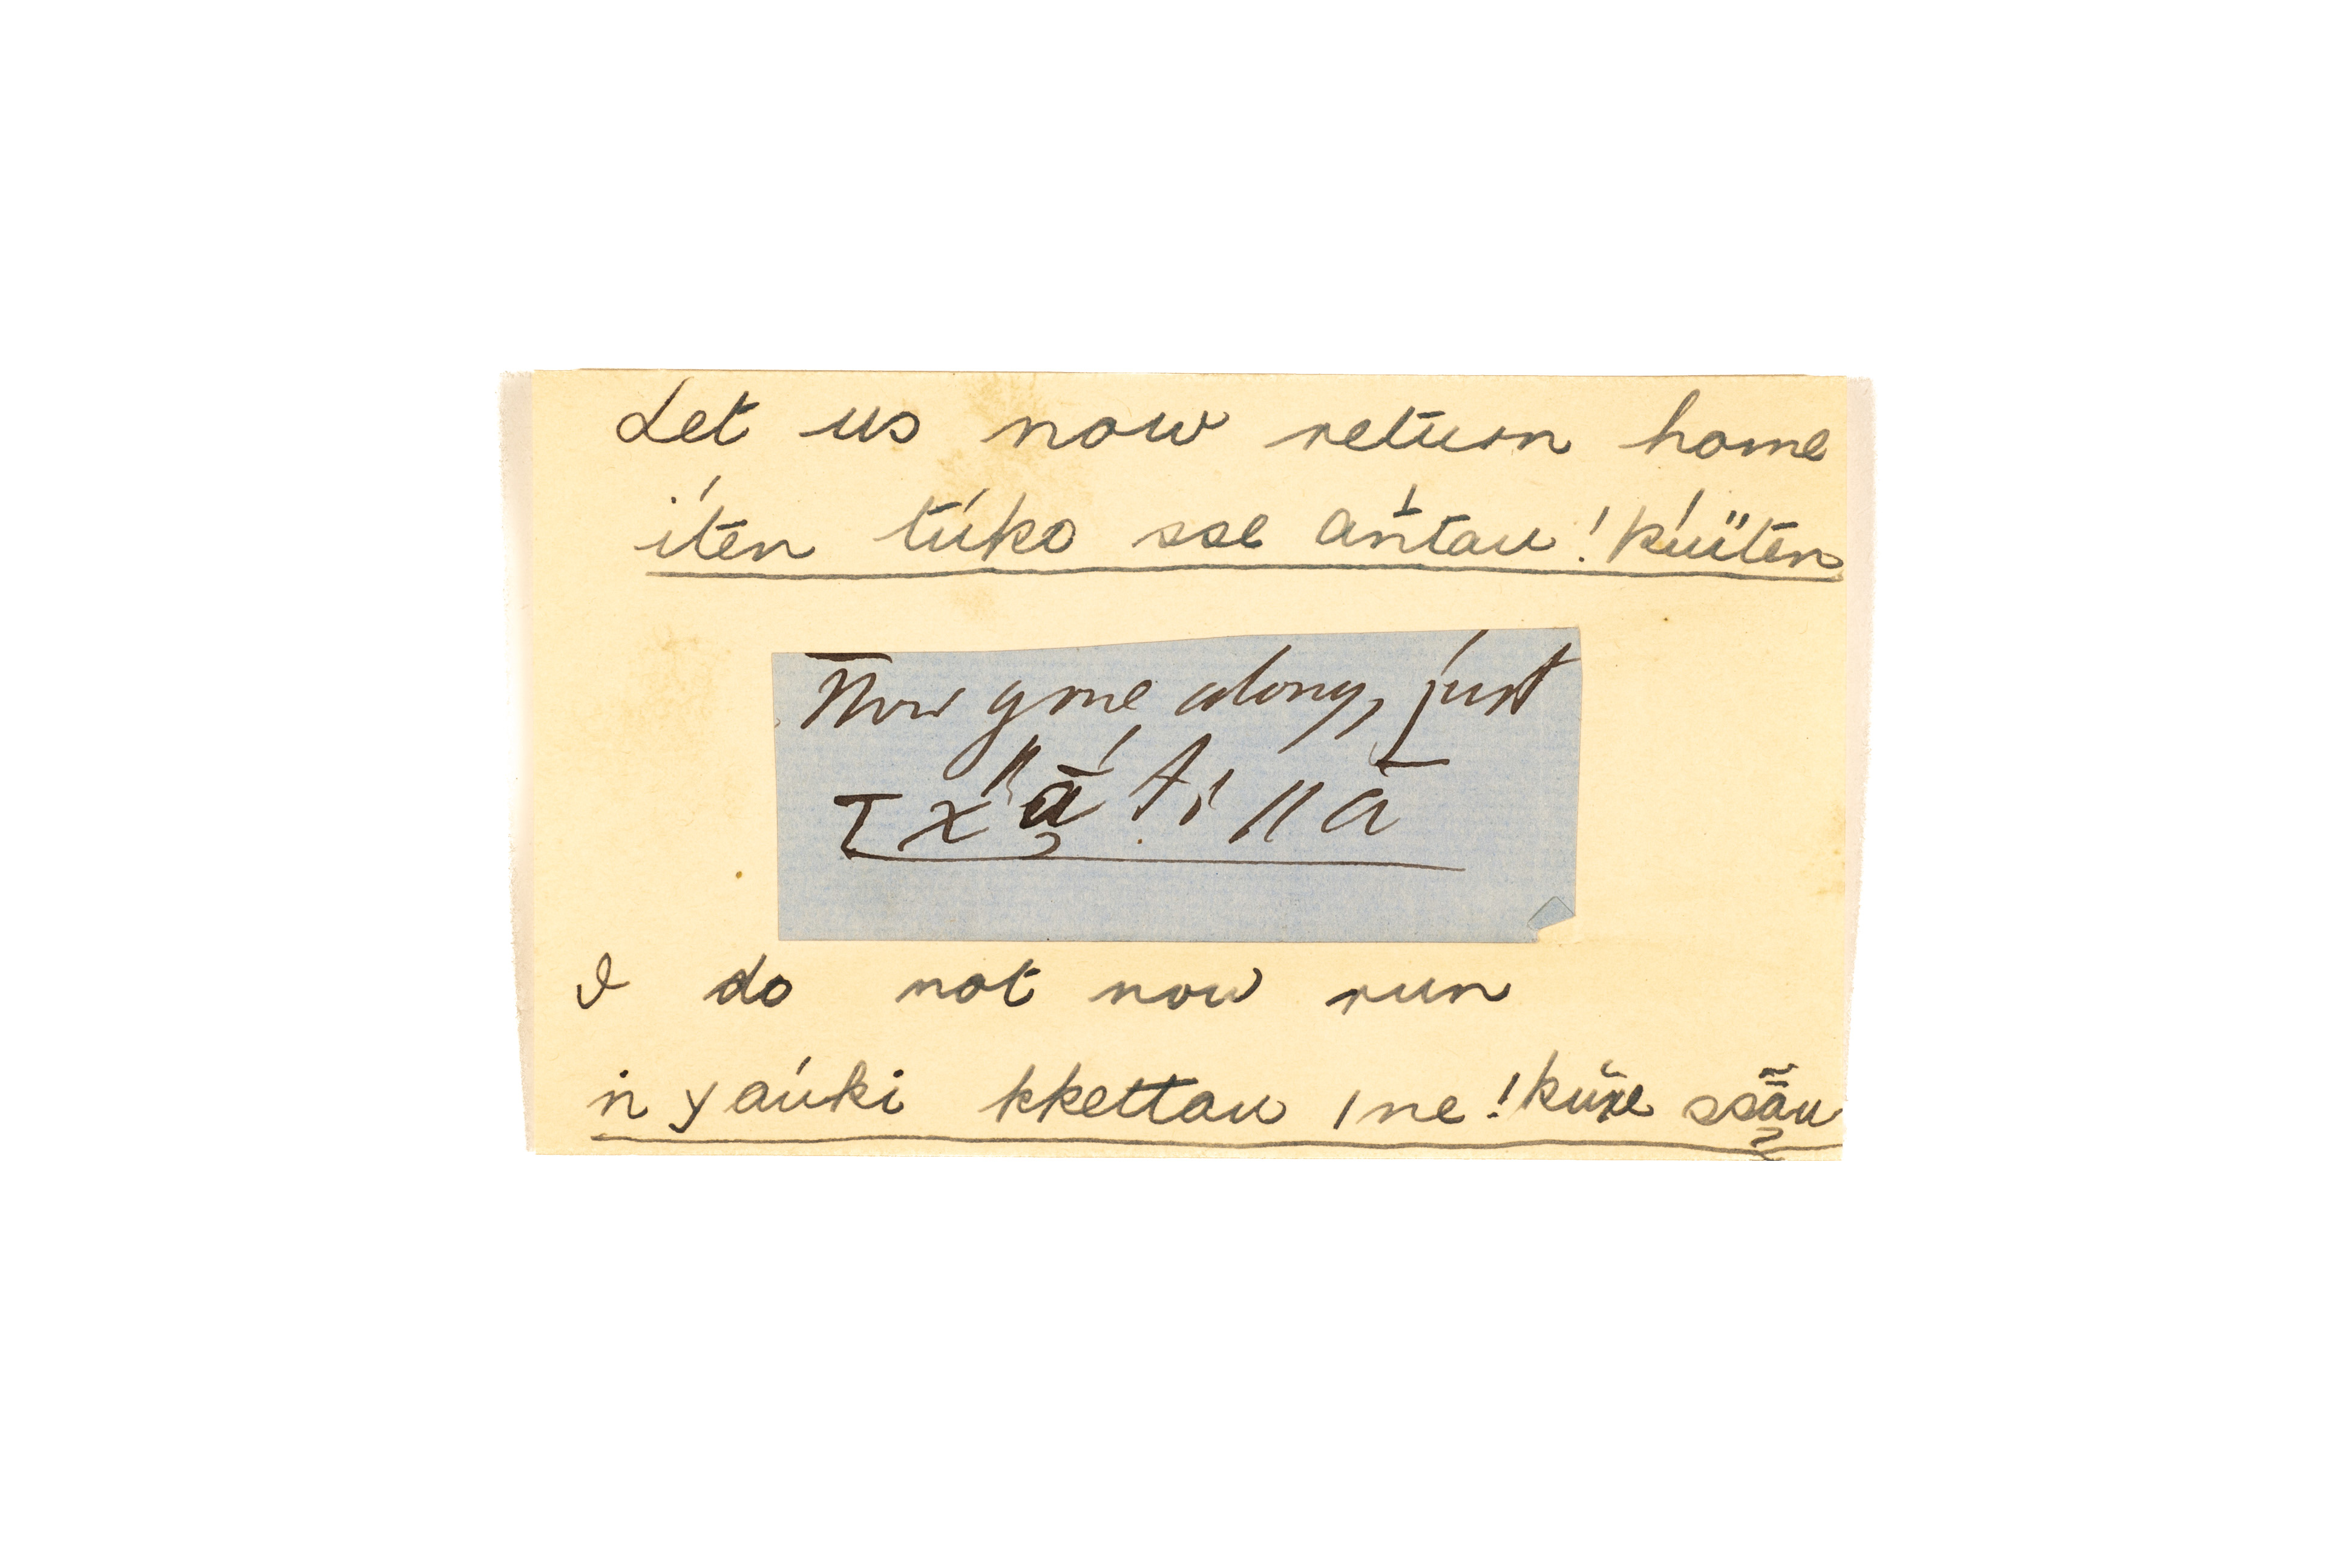 Let us now return home
íten túko sse ańtau !kúïten
Now gone along, just
I do not now run
n yaúki kkettau /ne !kŭxe ssā̃u